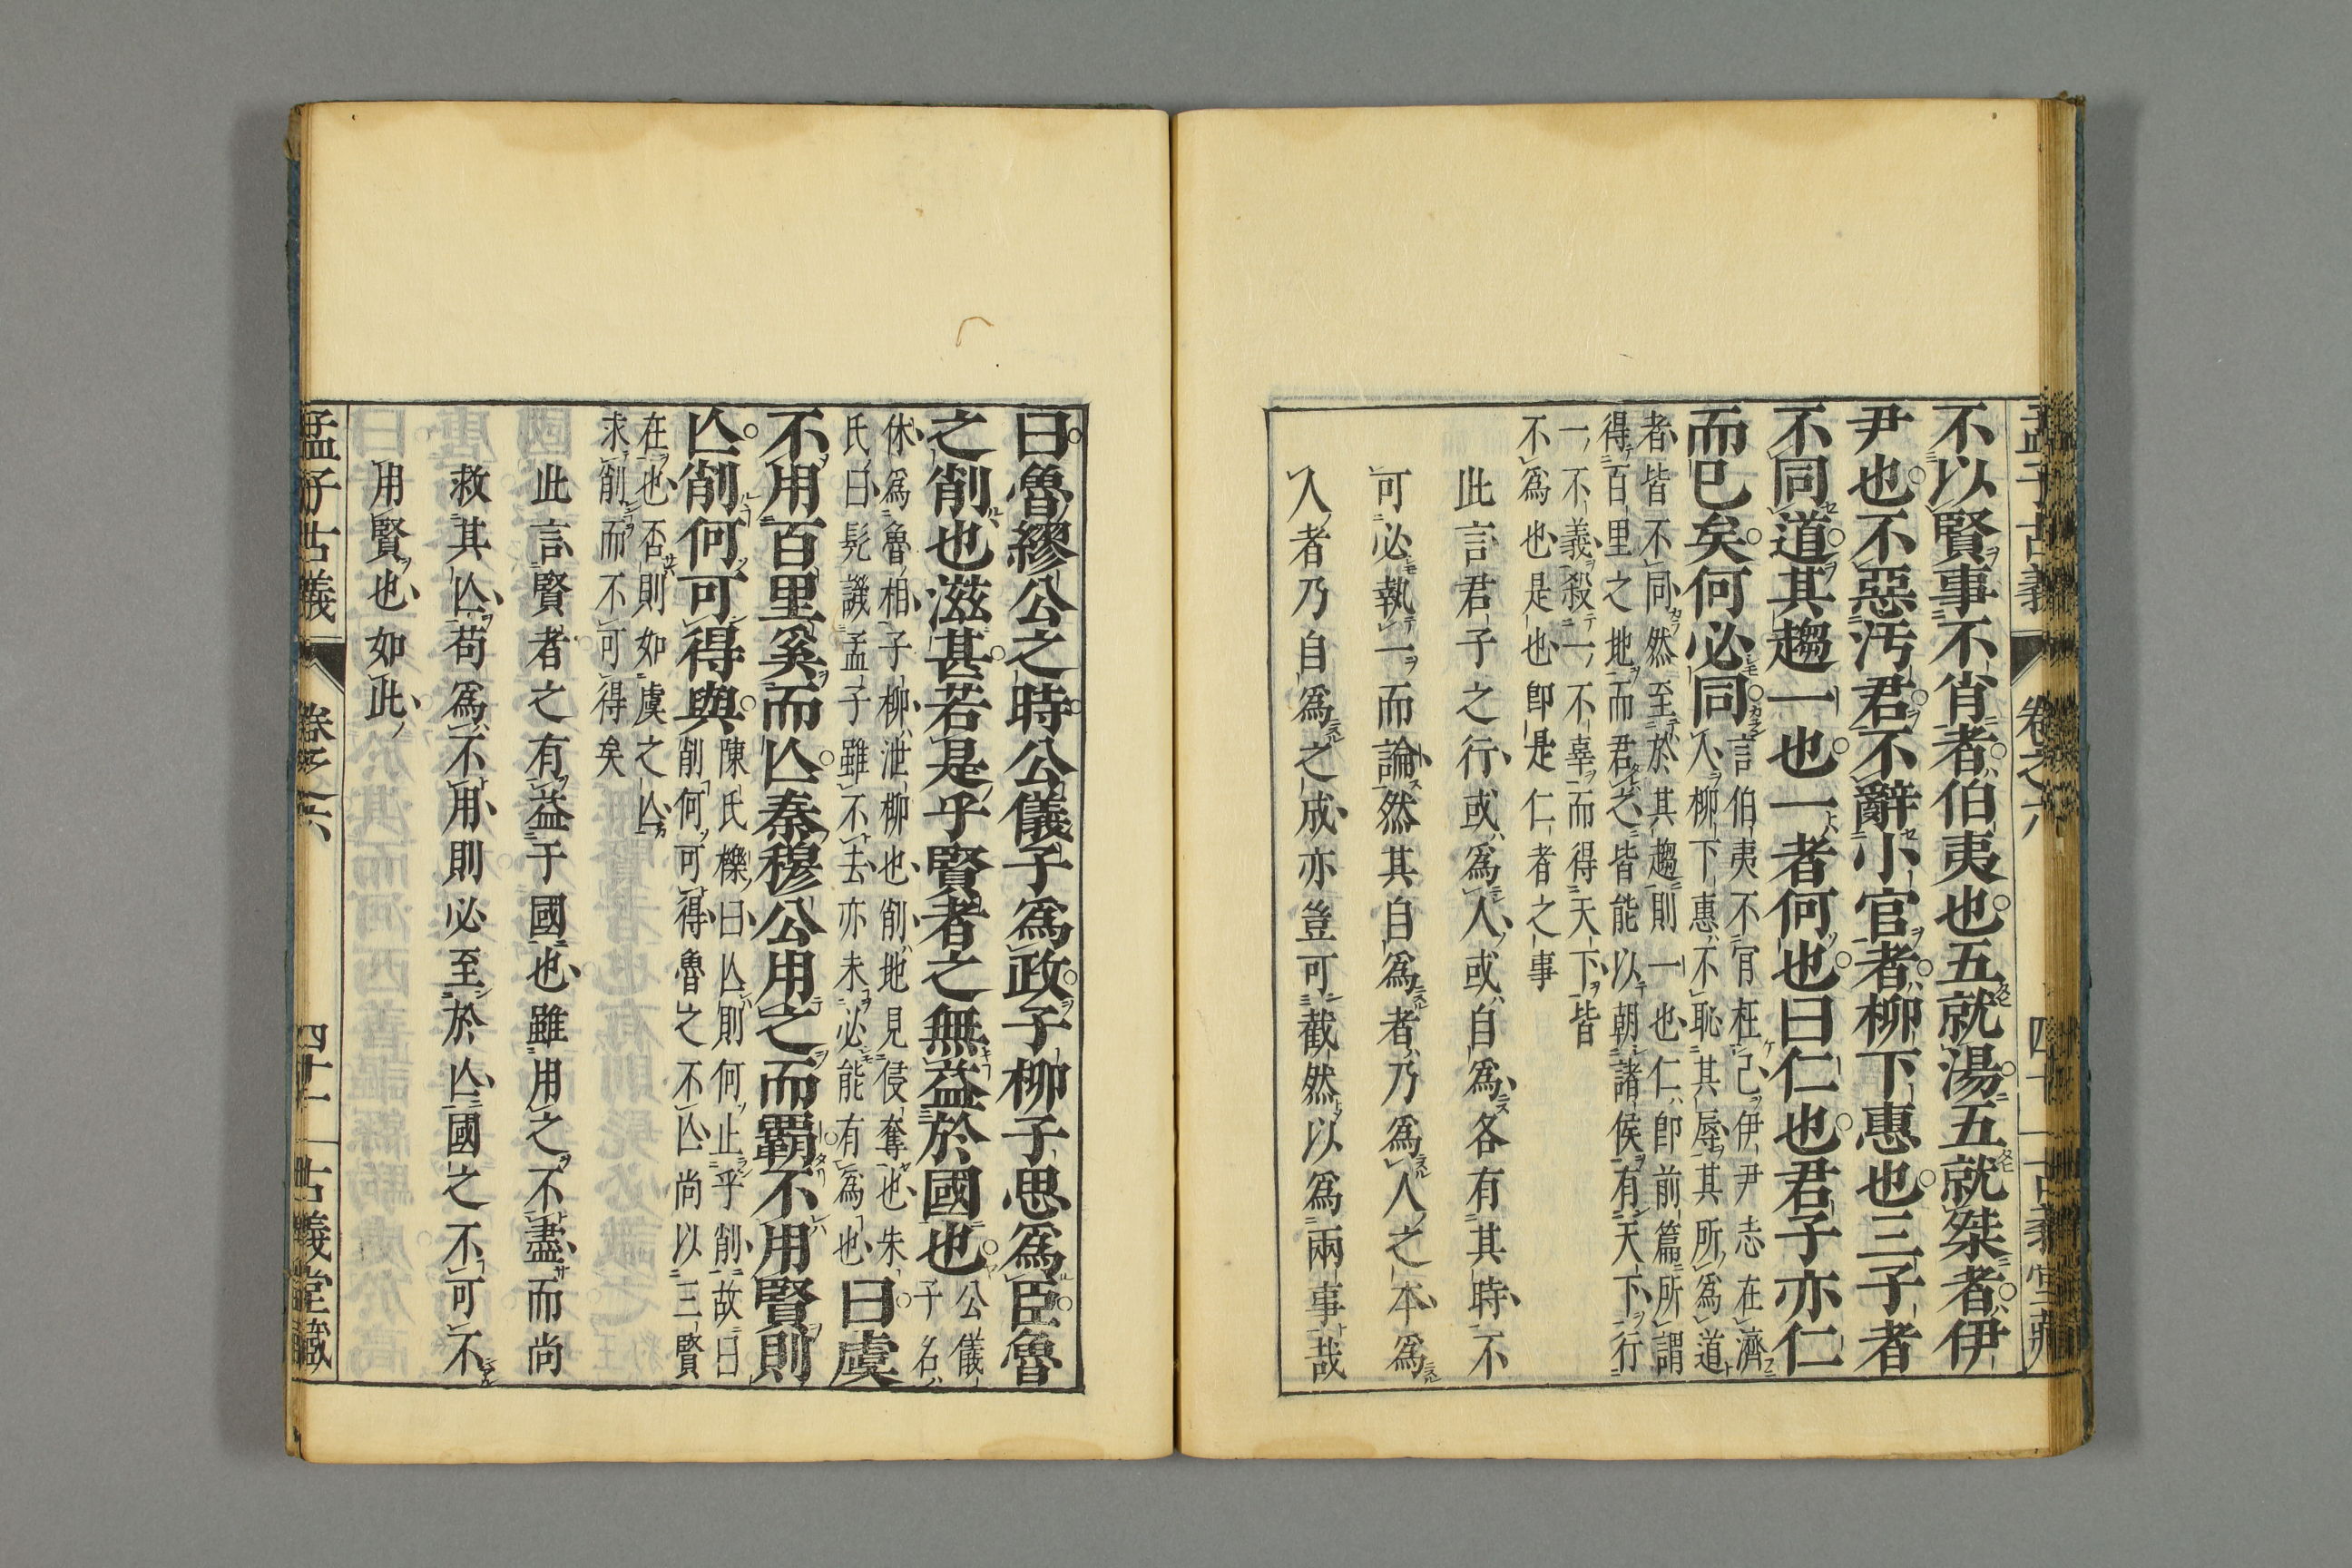 孟子古義 卷之六 四十一 古義堂藏
不以賢事不肖者伯夷也五就湯五就桀者伊
尹也不惡汚君不辭小官者柳下惠也三子者
不同道其趨一也一者何也曰仁也君子亦仁
而已矣何必同
言伯夷不肎枉己伊尹志在濟
人柳下惠不恥其辱其所爲道
者皆不同然至於其趨則一也仁即前篇所謂
得百里之地而君之皆能以朝諸侯有天下行
一不義殺一不辜而得天下皆
不爲也是也即是仁者之事
此言君子之行或爲人或自爲各有其時不
可必執一而論然其自爲者乃爲人之本爲
人者乃自爲之成亦豈可截然以爲兩事哉
曰魯繆公之時公儀子爲政子柳子思爲臣魯
之削也滋甚若是乎賢者之無益於國也
公儀
子名
休爲魯相子柳泄柳也削地見侵奪也朱
氏曰髡譏孟子雖不去亦未必能有爲也
曰虞
不用百里奚而亾秦穆公用之而覇不用賢則
亾削何可得與
陳氏櫟曰亾則何止乎削故曰
削何可得魯之不亾尚以三賢
在也否則如虞之亾
求削而不可得矣
此言賢者之有益于國也雖用之不盡而尚
救其亾苟爲不用則必至於亾國之不可不
用賢也如此
孟子古義 卷之六 四十一 古義堂藏